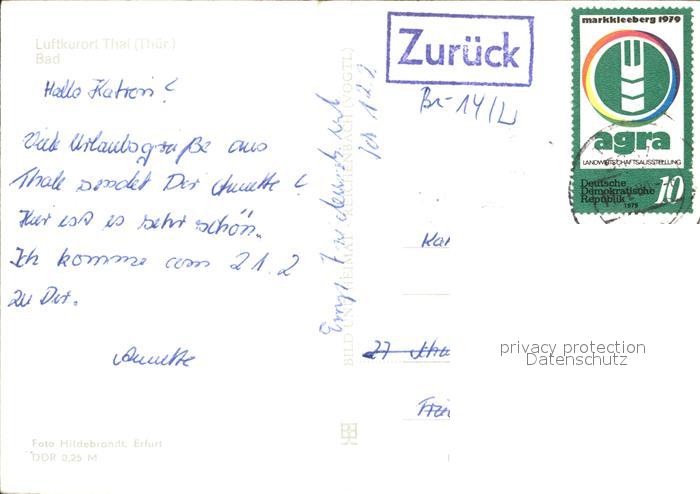 Luftkurort Thal (Thür.)
Bad
Hallo Katrin!
Viele Urlaubsgrüße aus
Thale sendet Dir Annette!
Hier ist es sehr schön.
Ich komme am 21.2
zu Dir.
Annette
Foto Hildebrandt, Erfurt
DDR 0,25 M
BILD UND HEIMAT REICHENBACH (VOGTL)
Zurück
markkleeberg 1979
agra
LANDWIRTSCHAFTSAUSSTELLUNG
Deutsche
Demokratische
Republik
10
1979
27
privacy protection
Datenschutz